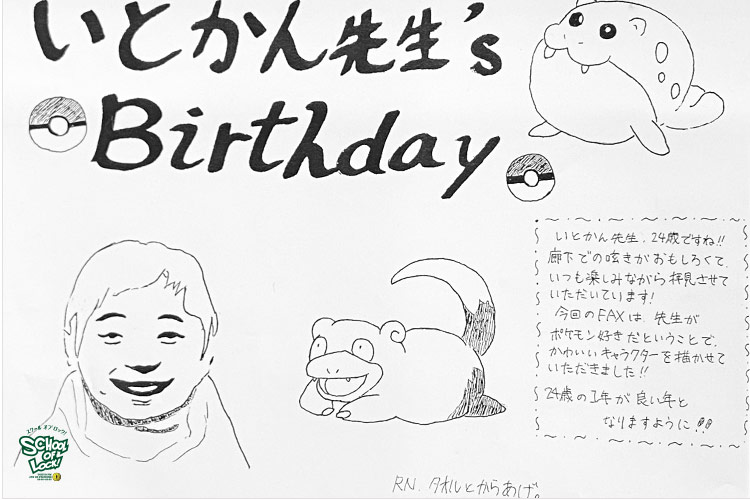 いとかん先生's
Birthday
いとかん先生、24歳ですね!!
廊下での呟きがおもしろくて、
いつも楽しみながら拝見させて
いただいています!
今回のFAXは、先生が
ポケモン好きだということで、
かわいいキャラクターを描かせて
いただきました!!
24歳の1年が良い年と
なりますように!!
スクール オブ ロック!
SCHOOL
OF
LOCK!
RN. タオルとからあげ。